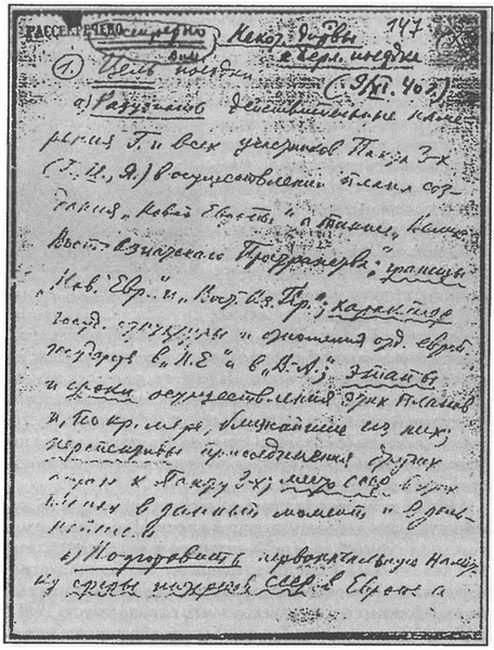 147
РАССЕКРЕЧЕНО секретно Некот. дир-вы
к Берл. поездке
1. Цель поездки
(9/XI.40 г.)
а) Разузнать действительные наме-
рения Г. и всех участников Пакта 3-х
(Г., И., Я.) в осуществлении плана соз-
дания „Новой Европы“, а также „Велик.
Вост-Азиатского Пространства“; границы
„Нов. Евр.“ и „Вост.-Аз. Пр.“; характер
госуд. структуры и отношения отд. европ.
государств в „Н.Е.“ и в „В.-А.“; этапы
и сроки осуществления этих планов
и, по кр. мере, ближайшие из них;
перспективы присоединения других
стран к Пакту 3-х; место СССР в этих
планах в данный момент и в даль-
нейшем.
б) Подготовить первоначальную намет-
ку сферы интересов СССР в Европе а